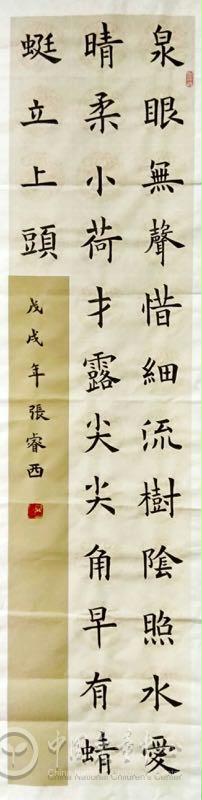 泉眼無聲惜細流樹陰照水愛
晴柔小荷才露尖尖角早有蜻
蜓立上頭
戊戌年張睿西
China National Children's Center